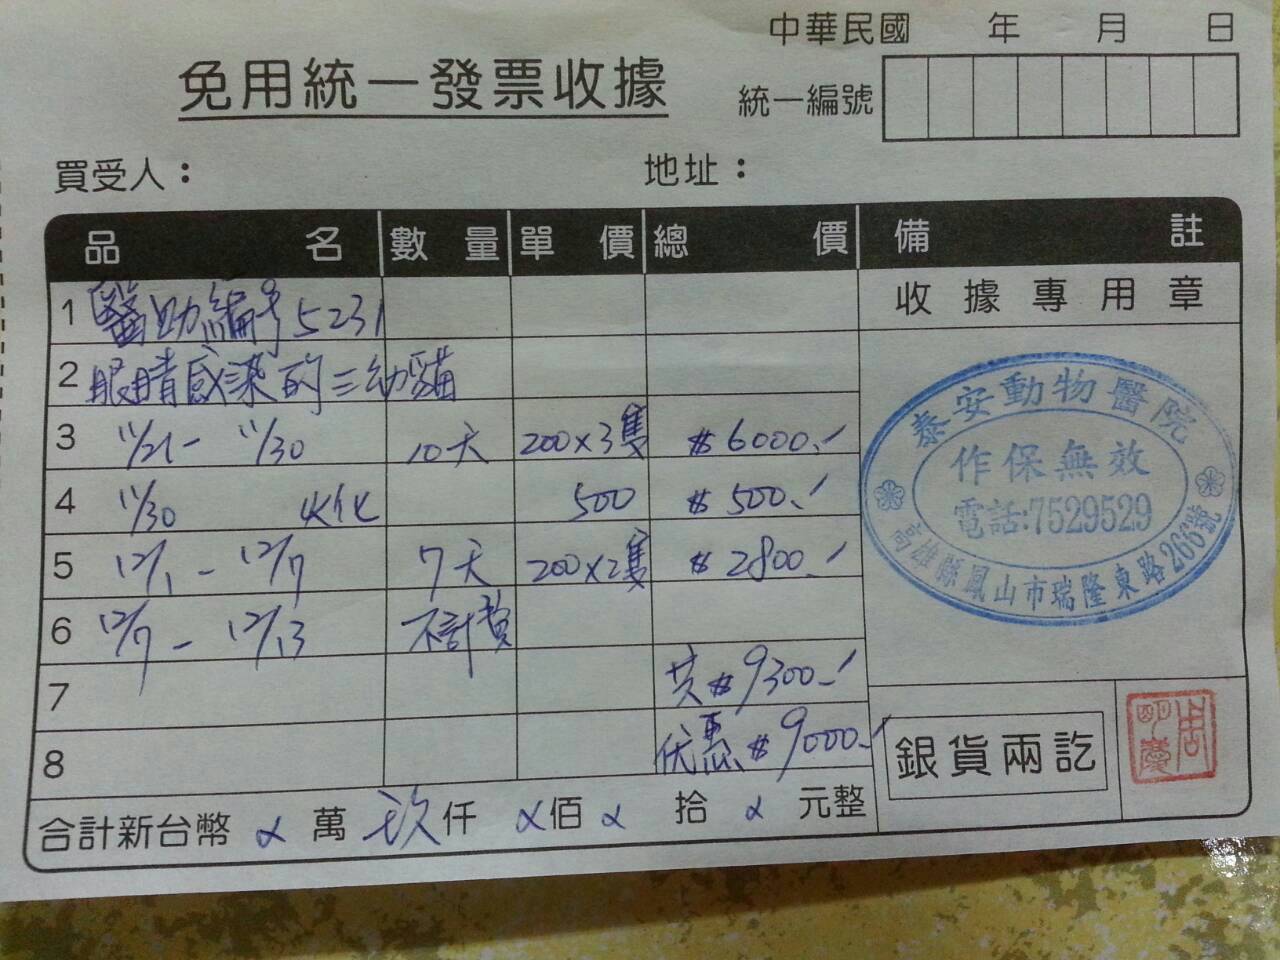 中華民國 年 月 日
免用統一發票收據
統一編號
買受人： 地址：
品名 數量 單價 總價 備註
1 醫助編号5231
收據專用章
2 眼睛感染的三幼貓
3 11/21 - 11/30 10天 200×3隻 $6000.-
4 11/30 火化 500 $500.-
5 12/1 - 12/7 7天 200×2隻 $2800.-
6 12/7 - 12/13 不計費
7 共$9300.-
8 优惠$9000.-
泰安動物醫院
作保無效
電話:7529529
高雄縣鳳山市瑞隆東路266號
銀貨兩訖
合計新台幣 萬 玖仟 佰 拾 元整